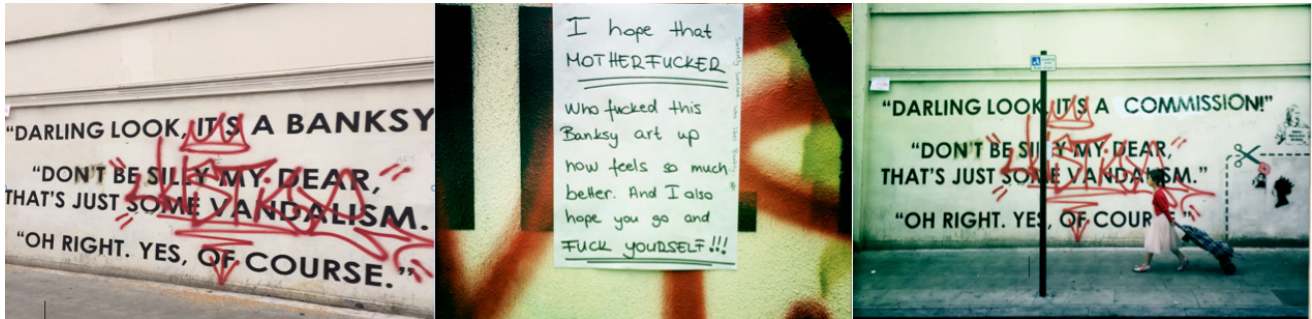 "DARLING LOOK, IT'S A BANKSY
"DON'T BE SILLY MY DEAR,
THAT'S JUST SOME VANDALISM.
"OH RIGHT. YES, OF COURSE."
I hope that
MOTHERFUCKER
Who fucked this
Banksy art up
now feels so much
better. And I also
hope you go and
FUCK YOURSELF!!!
"DARLING LOOK, IT'S A COMMISSION!"
"DON'T BE SILLY MY DEAR,
THAT'S JUST SOME VANDALISM."
"OH RIGHT. YES, OF COUR